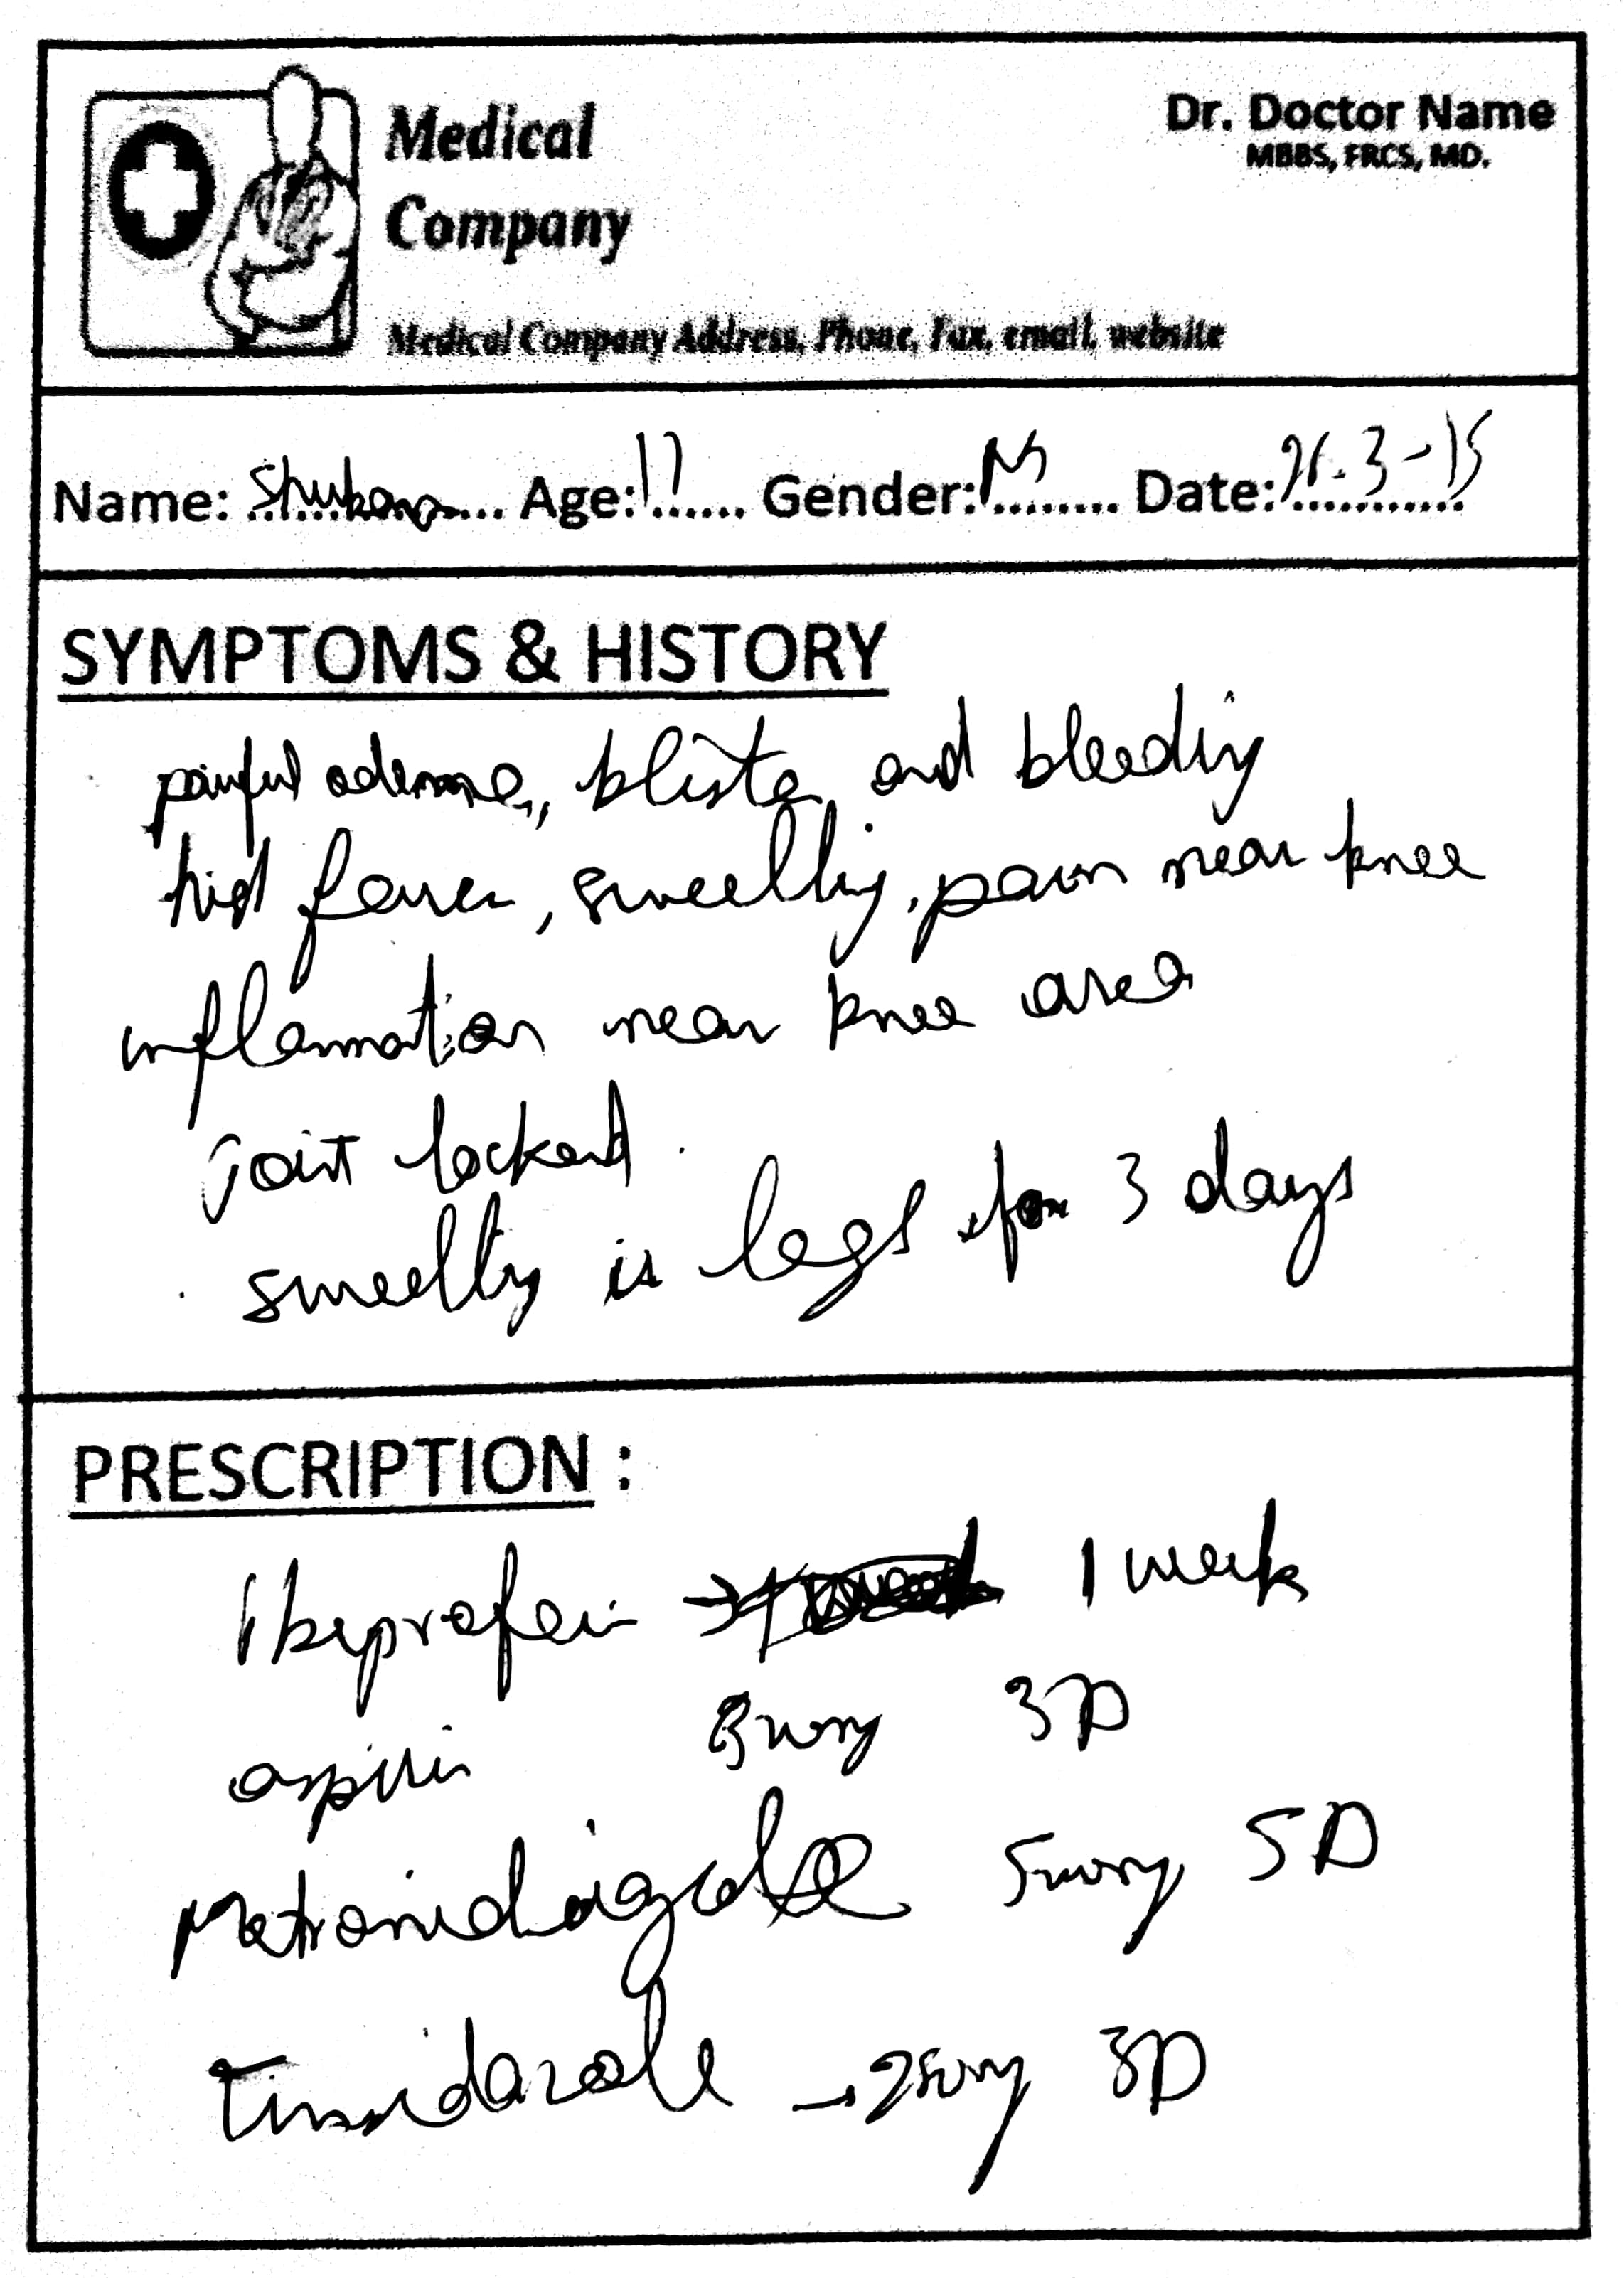 Medical
Company
Dr. Doctor Name
MBBS, FRCS, MD.
Medical Company Address, Phone, Fax, email, website
Name: ............... Age: 17 ...... Gender: M ........ Date: ...........
SYMPTOMS & HISTORY
painful odema,, bliste and bleeding
high fever, sweelling, pain near knee
inflammation near knee area
Joint locked
sweelling is legs for 3 days
PRESCRIPTION :
Ibuprofein → 1 week
aspirin 3D
Metronidiazole 5D
Tinidazole → 250mg 3D